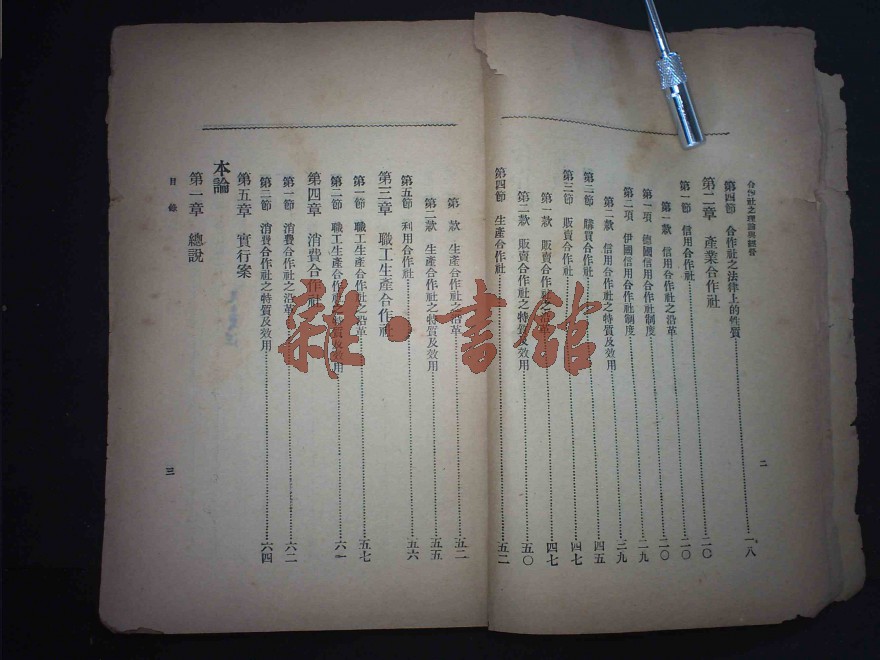 合作社之理論與經營
二
第四節 合作社之法律上的性質 一八
第二章 產業合作社 二〇
第一節 信用合作社 二〇
第一款 信用合作社之沿革 二〇
第一項 德國信用合作社制度 二九
第二項 伊國信用合作社制度 三九
第二款 信用合作社之特質及效用 四五
第二節 購買合作社 四七
第三節 販賣合作社 四七
第一款 販賣合作社之沿革 四七
第二款 販賣合作社之特質及效用 五〇
第四節 生產合作社 五二
第一款 生產合作社之沿革 五二
第二款 生產合作社之特質及效用 五五
第五節 利用合作社 五六
第三章 職工生產合作社
第一節 職工生產合作社之沿革 五七
第二節 職工生產合作社之特質及效用 六一
第四章 消費合作社
第一節 消費合作社之沿革 六二
第二節 消費合作社之特質及效用 六四
第五章 實行案
本論
第一章 總說
目錄
三
雜·書館